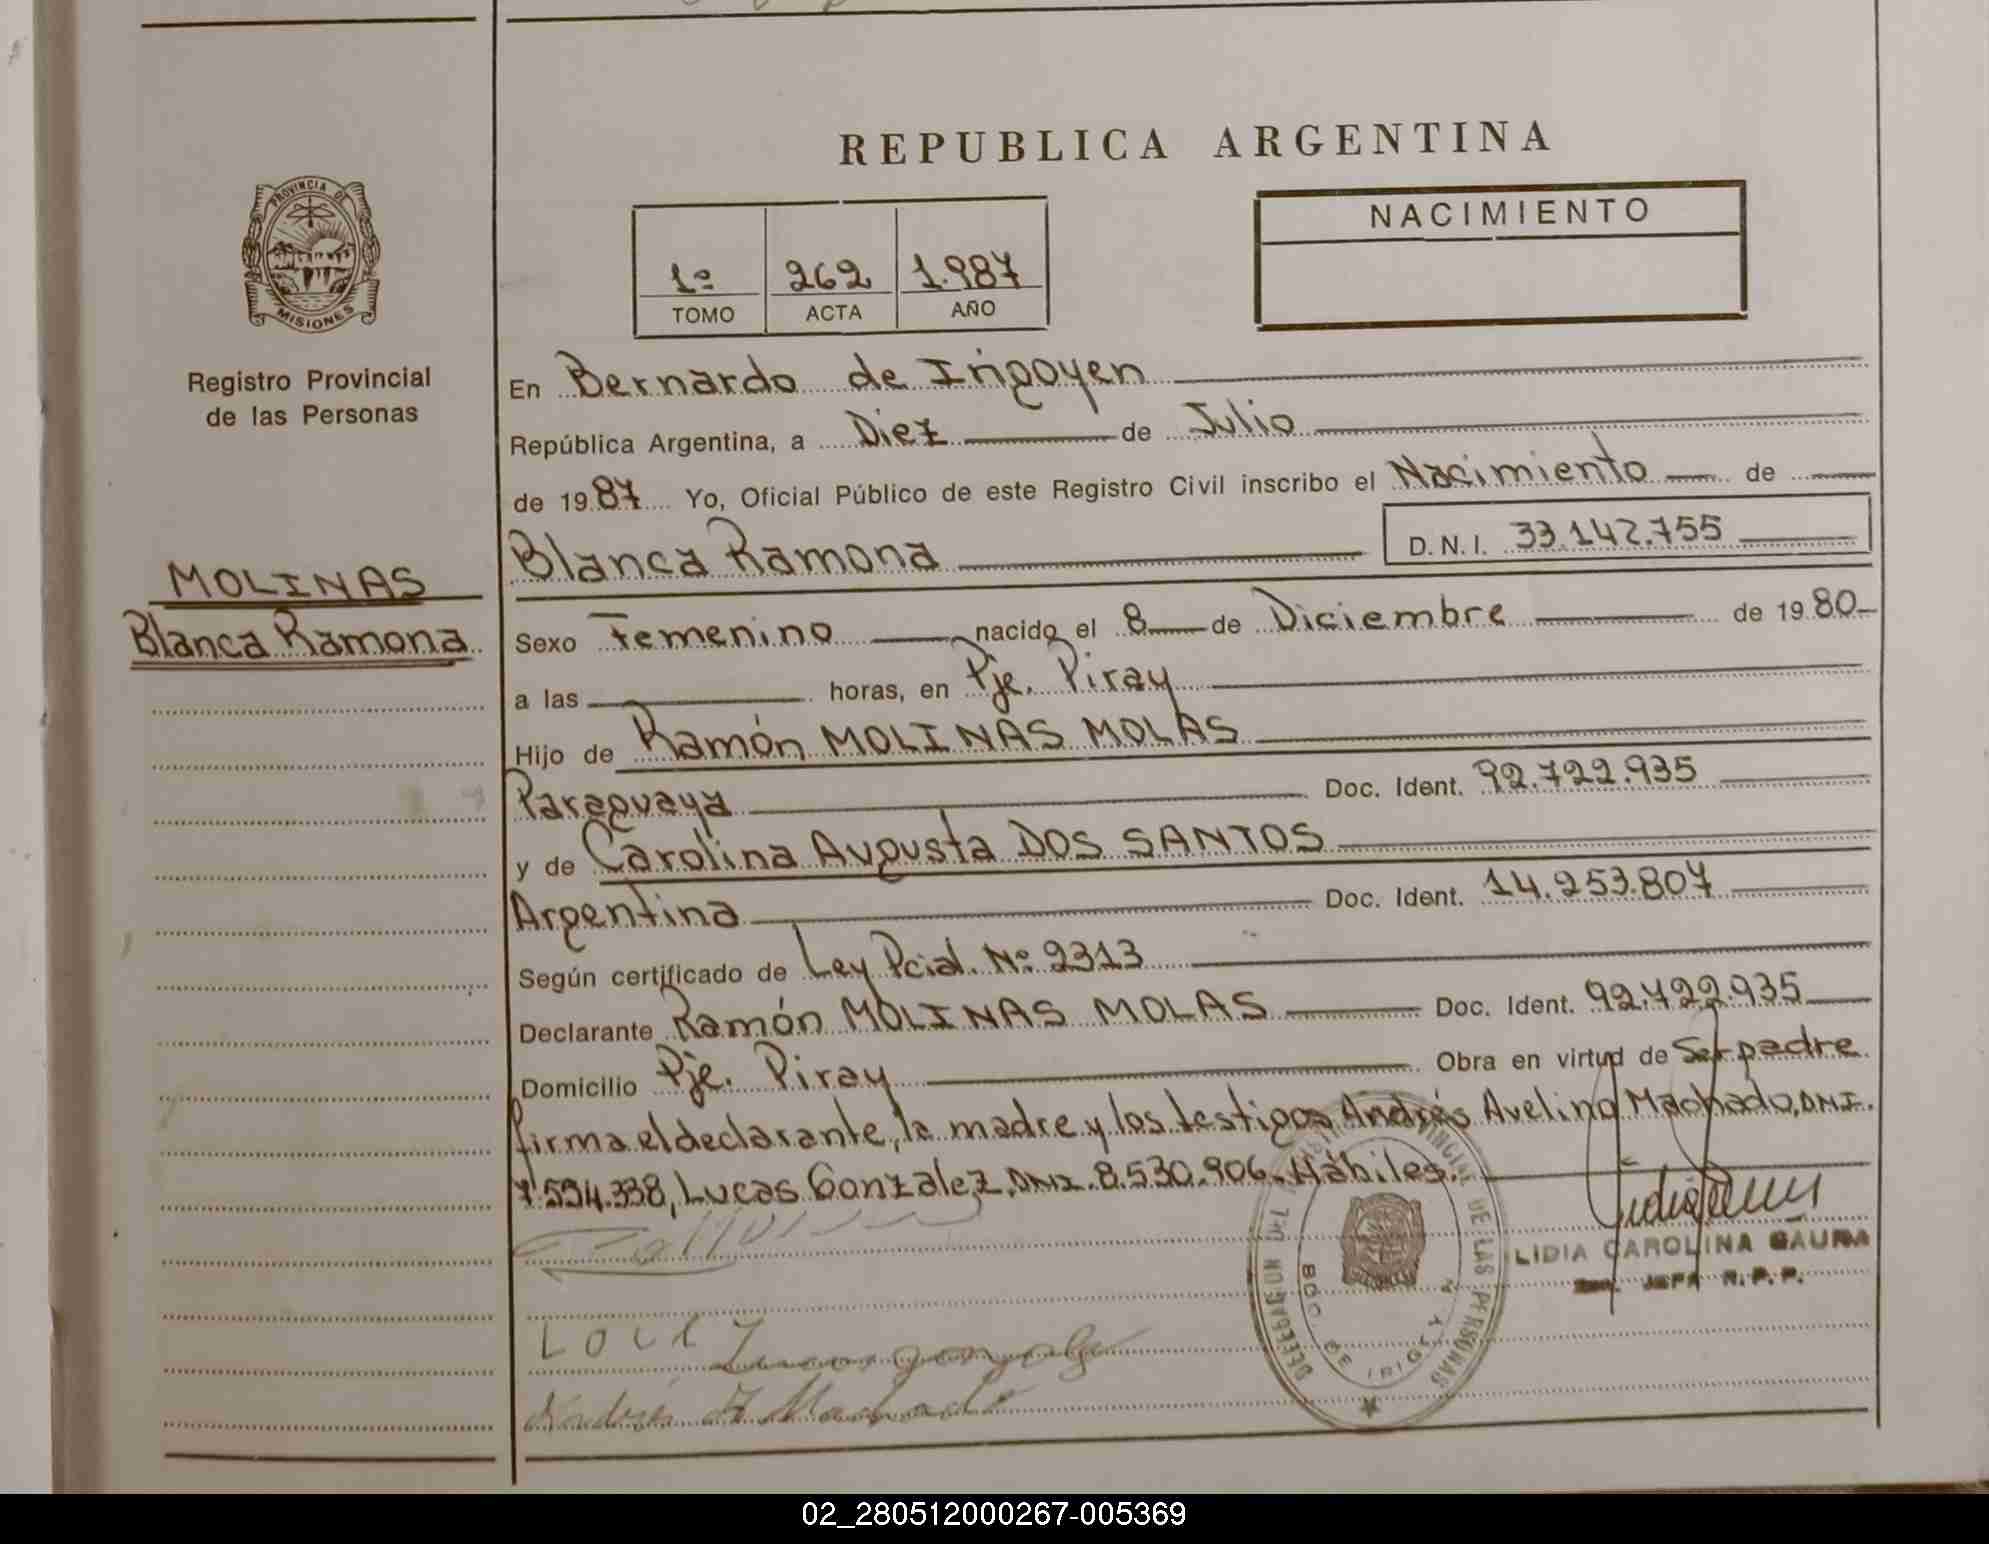 REPUBLICA ARGENTINA
PROVINCIA DE
MISIONES
Registro Provincial
de las Personas
1º 262 1.987
TOMO ACTA AÑO
NACIMIENTO
En Bernardo de Irigoyen
República Argentina, a Diez de Julio
de 1987 Yo, Oficial Público de este Registro Civil inscribo el Nacimiento de
Blanca Ramona D.N.I. 33.142.755
MOLINAS
Blanca Ramona
Sexo Femenino nacido el 8 de Diciembre de 1980
a las horas, en Pje. Piray
Hijo de Ramón MOLINAS MOLAS
Paraguaya Doc. Ident. 92.722.935
y de Carolina Augusta DOS SANTOS
Argentina Doc. Ident. 14.253.807
Según certificado de Ley Pcial. Nº 2313
Declarante Ramón MOLINAS MOLAS Doc. Ident. 92.722.935
Domicilio Pje. Piray Obra en virtud de Ser padre
firma el declarante, la madre y los testigos Andrés Avelino Machado, DNI.
7.594.338, Lucas Gonzalez, DNI. 8.530.906. Hábiles.
LIDIA CAROLINA GAUNA
JEFA R. P. P.
DELEGACION DEL REGISTRO PROVINCIAL DE LAS PERSONAS
BDO. DE IRIGOYEN
Lucas Gonzalez
Andres A Machado
02_280512000267-005369